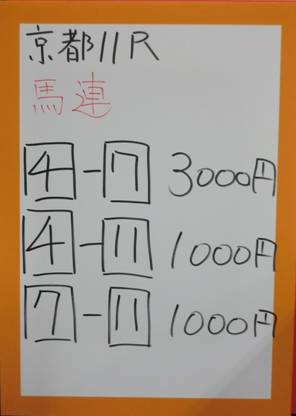 京都11R
馬連
4-7 3000円
4-11 1000円
7-11 1000円